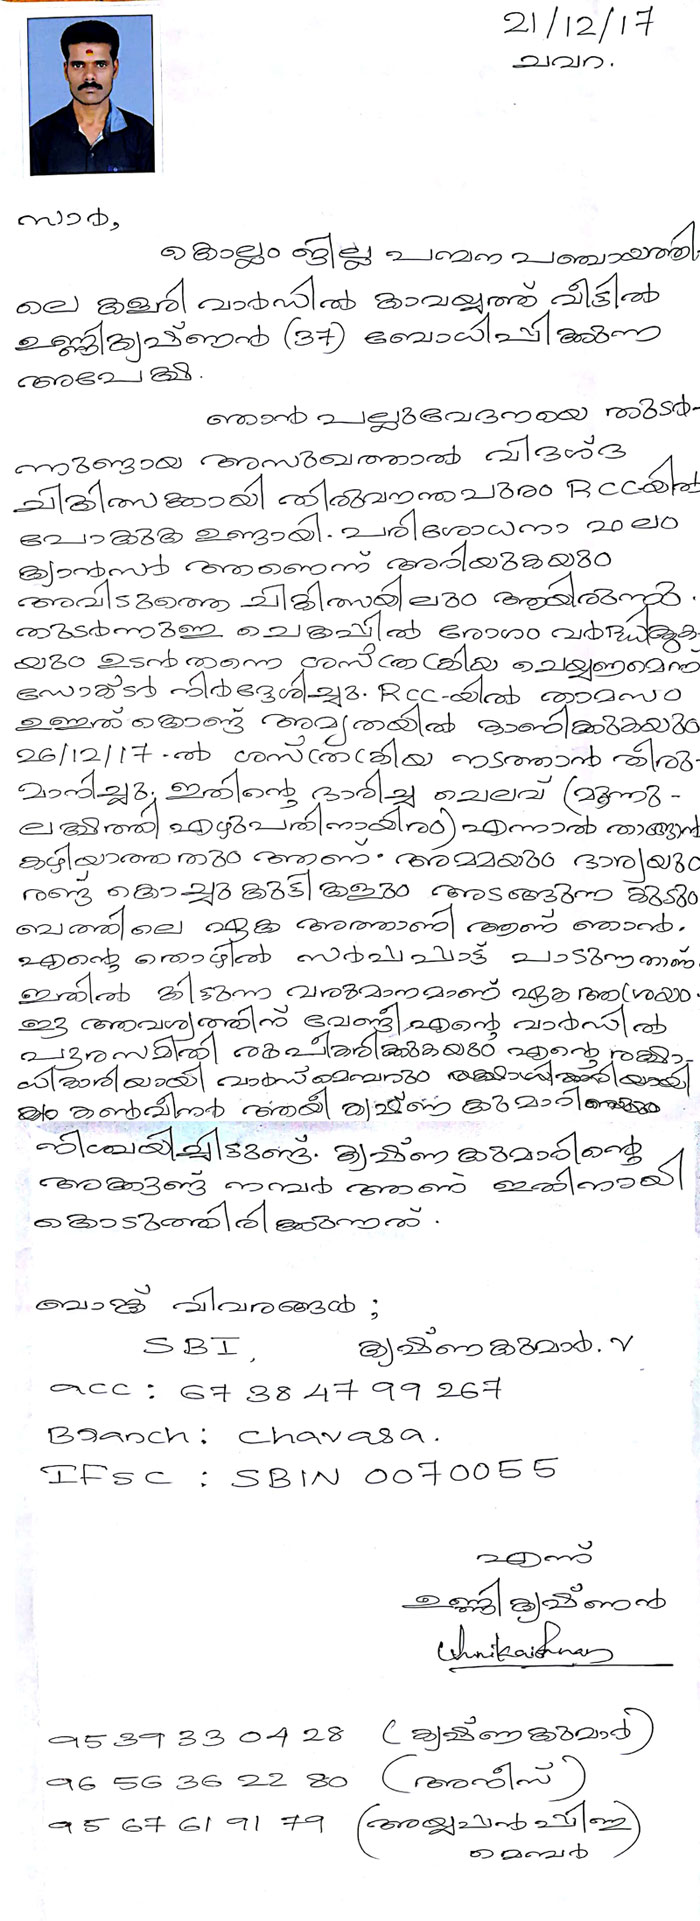 21/12/17
ചവറ.
സാർ,
കൊല്ലം ജില്ല പന്മന പഞ്ചായത്തി-
ലെ കളരി വാർഡിൽ കാവയ്യത്ത് വീട്ടിൽ
ഉണ്ണികൃഷ്ണൻ (37) ബോധിപ്പിക്കുന്ന
അപേക്ഷ.
ഞാൻ പല്ലുവേദനയെ തുടർ-
ന്നുണ്ടായ അസുഖത്താൽ വിദഗ്ദ
ചികിത്സക്കായി തിരുവനന്തപുരം RCC-യിൽ
പോകുക ഉണ്ടായി. പരിശോധനാ ഫലം
ക്യാൻസർ ആണെന്ന് അറിയുകയും
അവിടുത്തെ ചികിത്സയിലും ആയിരുന്നു.
തുടർന്നുള്ള ചെക്കപ്പിൽ രോഗം വർദ്ധിക്കുക
യും ഉടൻ തന്നെ ശസ്ത്രക്രിയ ചെയ്യണമെന്ന്
ഡോക്ടർ നിർദ്ദേശിച്ചു. RCC-യിൽ താമസം
ഉള്ളത് കൊണ്ട് അമൃതയിൽ കാണിക്കുകയും
26/12/17-ൽ ശസ്ത്രക്രിയ നടത്താൻ തീരു-
മാനിച്ചു. ഇതിന്റെ ഭാരിച്ച ചെലവ് (മൂന്നു-
ലക്ഷത്തി എഴുപതിനായിരം) എന്നാൽ താങ്ങാൻ
കഴിയാത്തതും ആണ്. അമ്മയും ഭാര്യയും
രണ്ട് കൊച്ചുകുട്ടികളും അടങ്ങുന്ന കുടും
ബത്തിലെ ഏക അത്താണി ആണ് ഞാൻ.
എന്റെ തൊഴിൽ സർപ്പപ്പാട്ട് പാടുന്നതാണ്.
ഇതിൽ കിട്ടുന്ന വരുമാനമാണ് ഏക ആശ്രയം.
ഈ ആവശ്യത്തിന് വേണ്ടി എന്റെ വാർഡിൽ
പൗരസമിതി രൂപീകരിക്കുകയും എന്റെ രക്ഷാ-
ധികാരിയായി വാർഡ് മെമ്പറും
കൺവീനർ ആയി കൃഷ്ണകുമാറിനെയും
നിശ്ചയിച്ചിട്ടുണ്ട്. കൃഷ്ണകുമാറിന്റെ
അക്കൗണ്ട് നമ്പർ ആണ് ഇതിനായി
കൊടുത്തിരിക്കുന്നത്.
ബാങ്ക് വിവരങ്ങൾ ;
SBI, കൃഷ്ണകുമാർ. V
acc : 67384799267
Branch : Chavara.
IFSC : SBIN 0070055
എന്ന്
ഉണ്ണികൃഷ്ണൻ
Unnikrishnan
9539330428 (കൃഷ്ണകുമാർ)
9656362280 (അനീസ്)
9567619179 (അയ്യപ്പൻപിള്ള
മെമ്പർ)